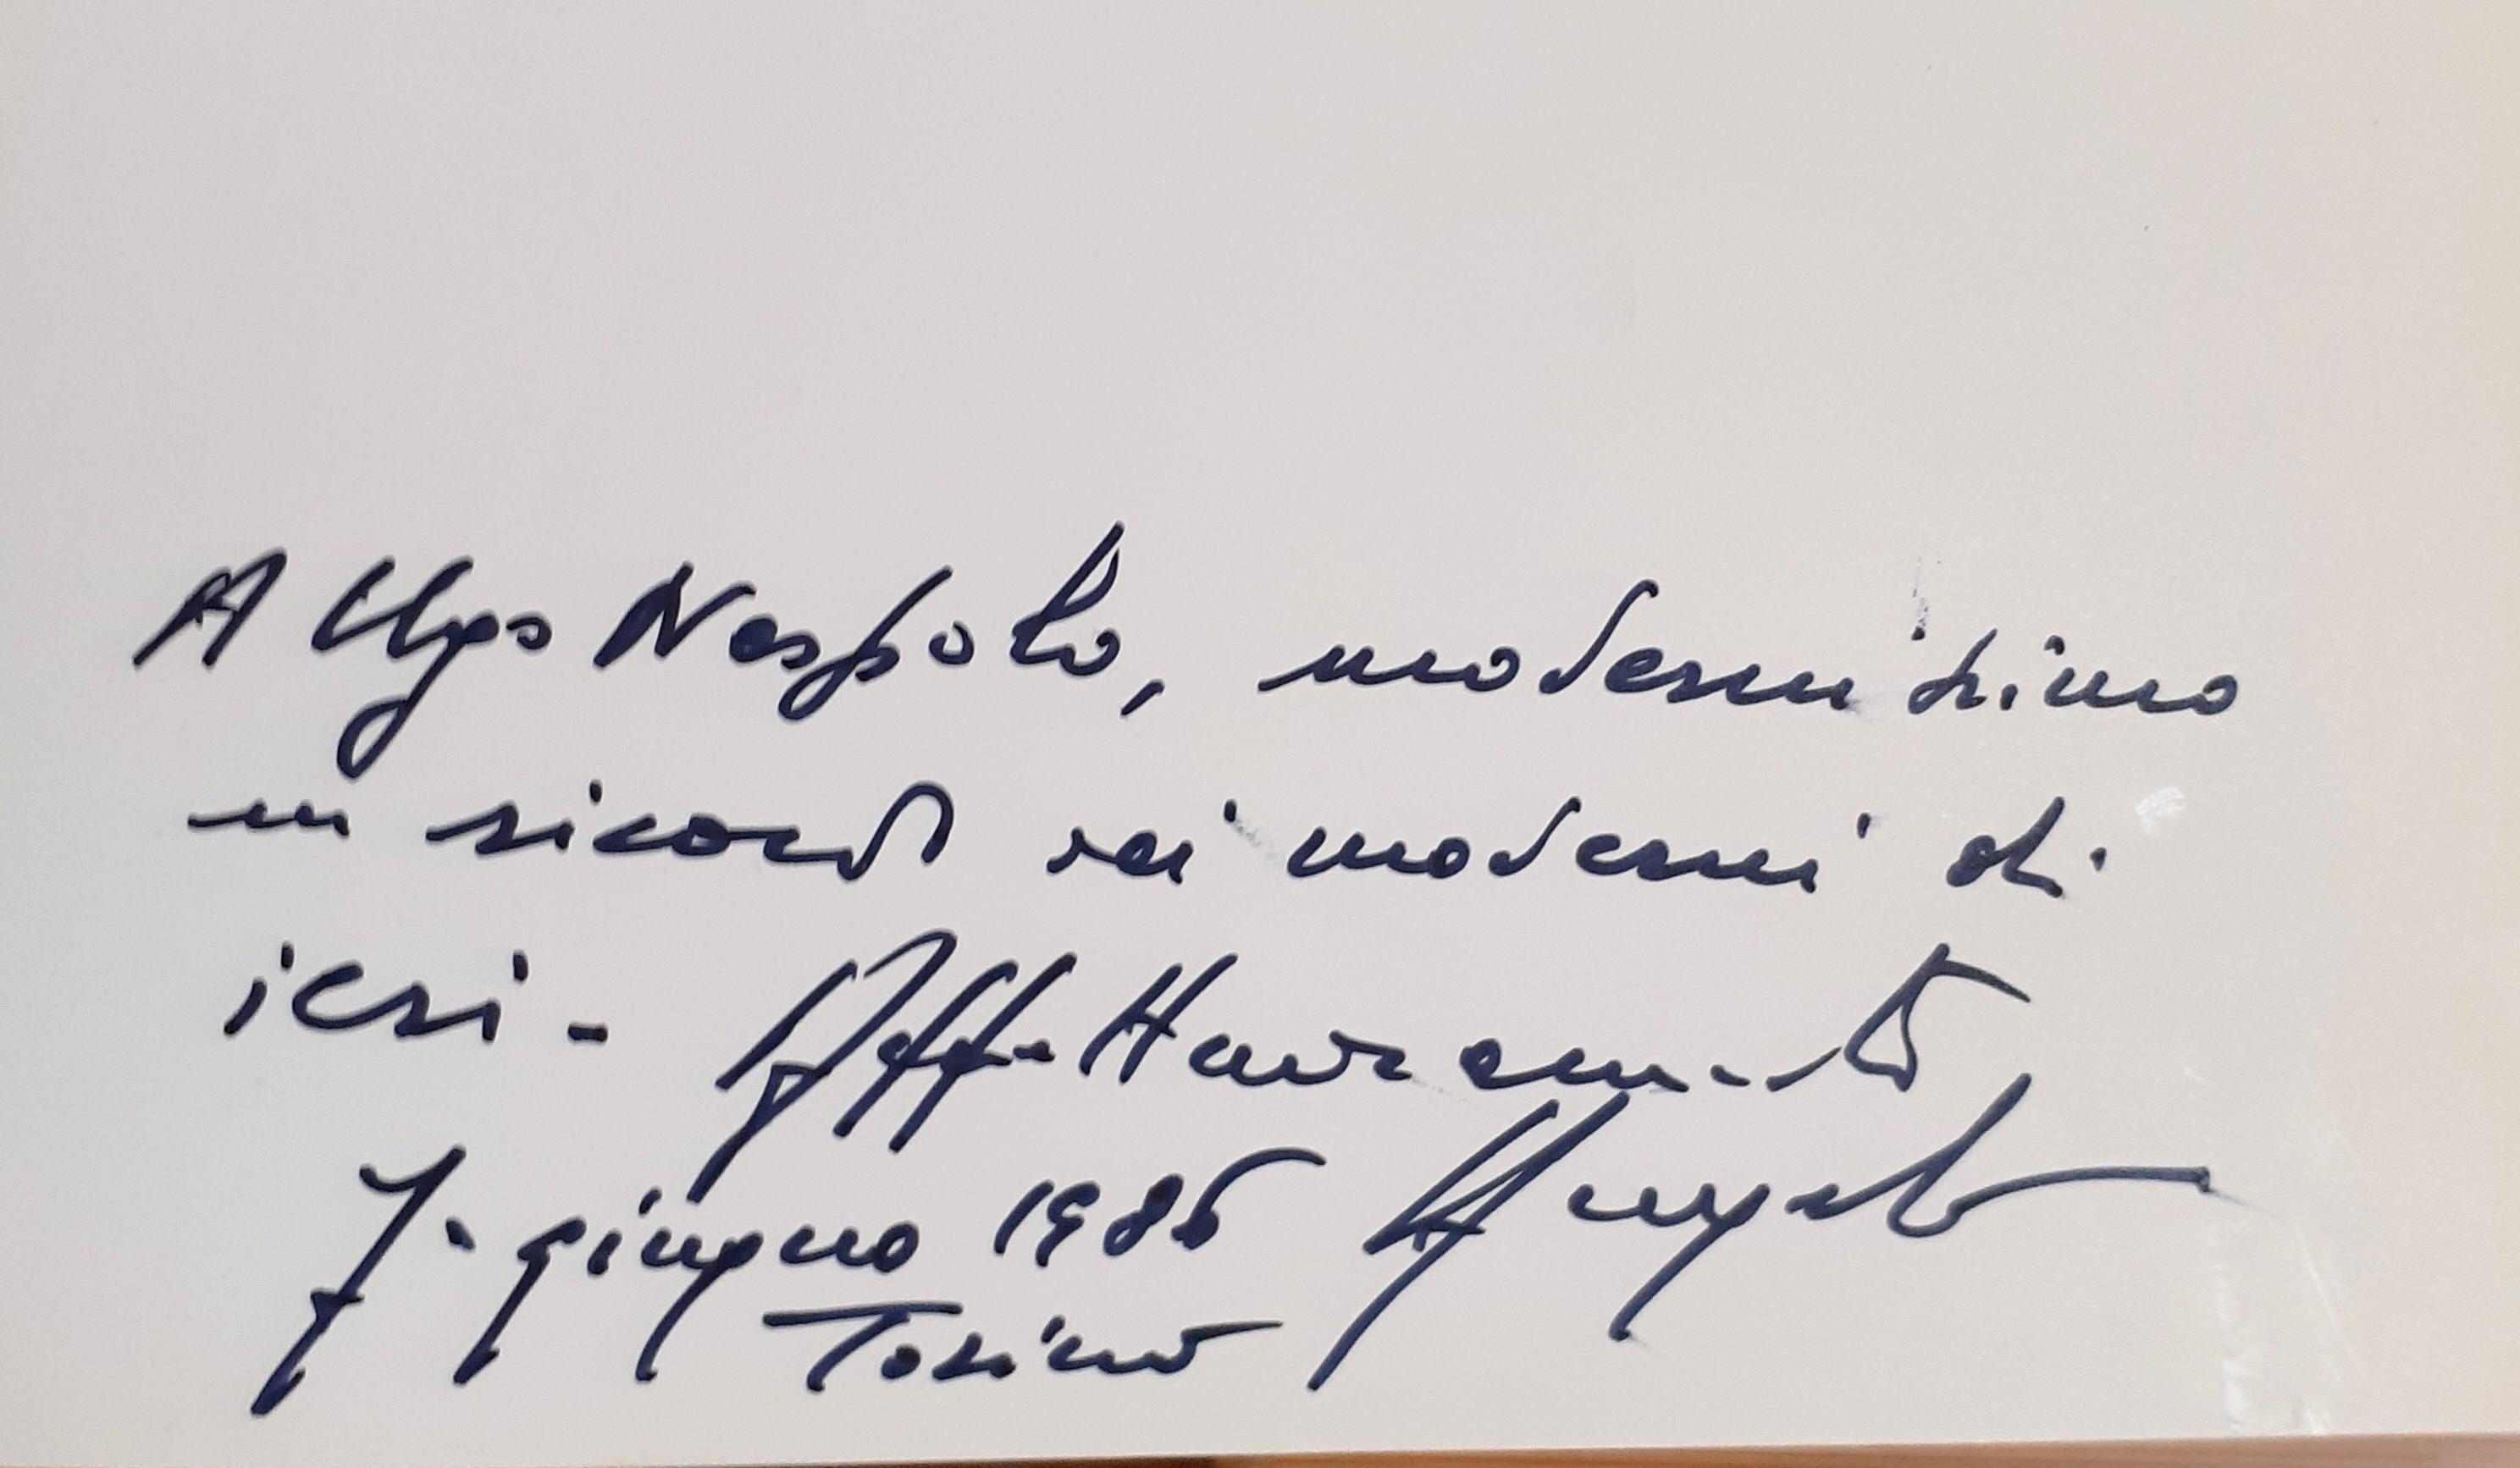 A Ugo Nespolo, modernissimo
in ricordo dei moderni di
ieri - Affettuosamente
7 - giugno 1986 Angelo
Torino